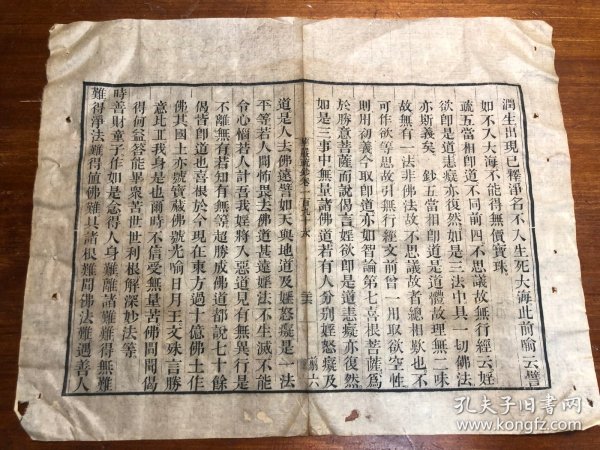 潤生出現已釋淨名不入生死大海此前喻云譬
如不入大海不能得無價寶珠
疏五當相即道不同前四不思議故無行經云婬
欲即是道恚癡亦復然如是三法中具一切佛法
亦斯義矣 鈔五當相即道是道體故理無二味
故無有一法非佛法故不思議故者總相歎也不
可作欲等思故引無行經文前曾一用取欲空性
則用初義今取即道亦如智論第七喜根菩薩為
於勝意菩薩而說偈言婬欲即是道恚癡亦復然
如是三事中無量諸佛道若有人分別婬怒癡及
道是人去佛遠譬如天與地道及婬怒癡是一法
平等若人聞怖畏去佛道甚遠婬法不生滅不能
令心惱若人計吾我婬將入惡道見有無異行是
不離無有若知有無等超勝成佛道都說七十餘
偈皆即道也喜根於今現在東方過十億佛土作
佛其國土亦號寶藏佛號光喻日月王文殊言勝
意比丘我身是也爾時不信受無量苦佛問聞偈
得何益答能畢眾苦世世利根解深妙法等
時善財童子作如是念得人身難離諸難難得無難
難得淨法難得值佛難具諸根難聞佛法難遇善人
孔夫子旧書网
www.kongfz.com